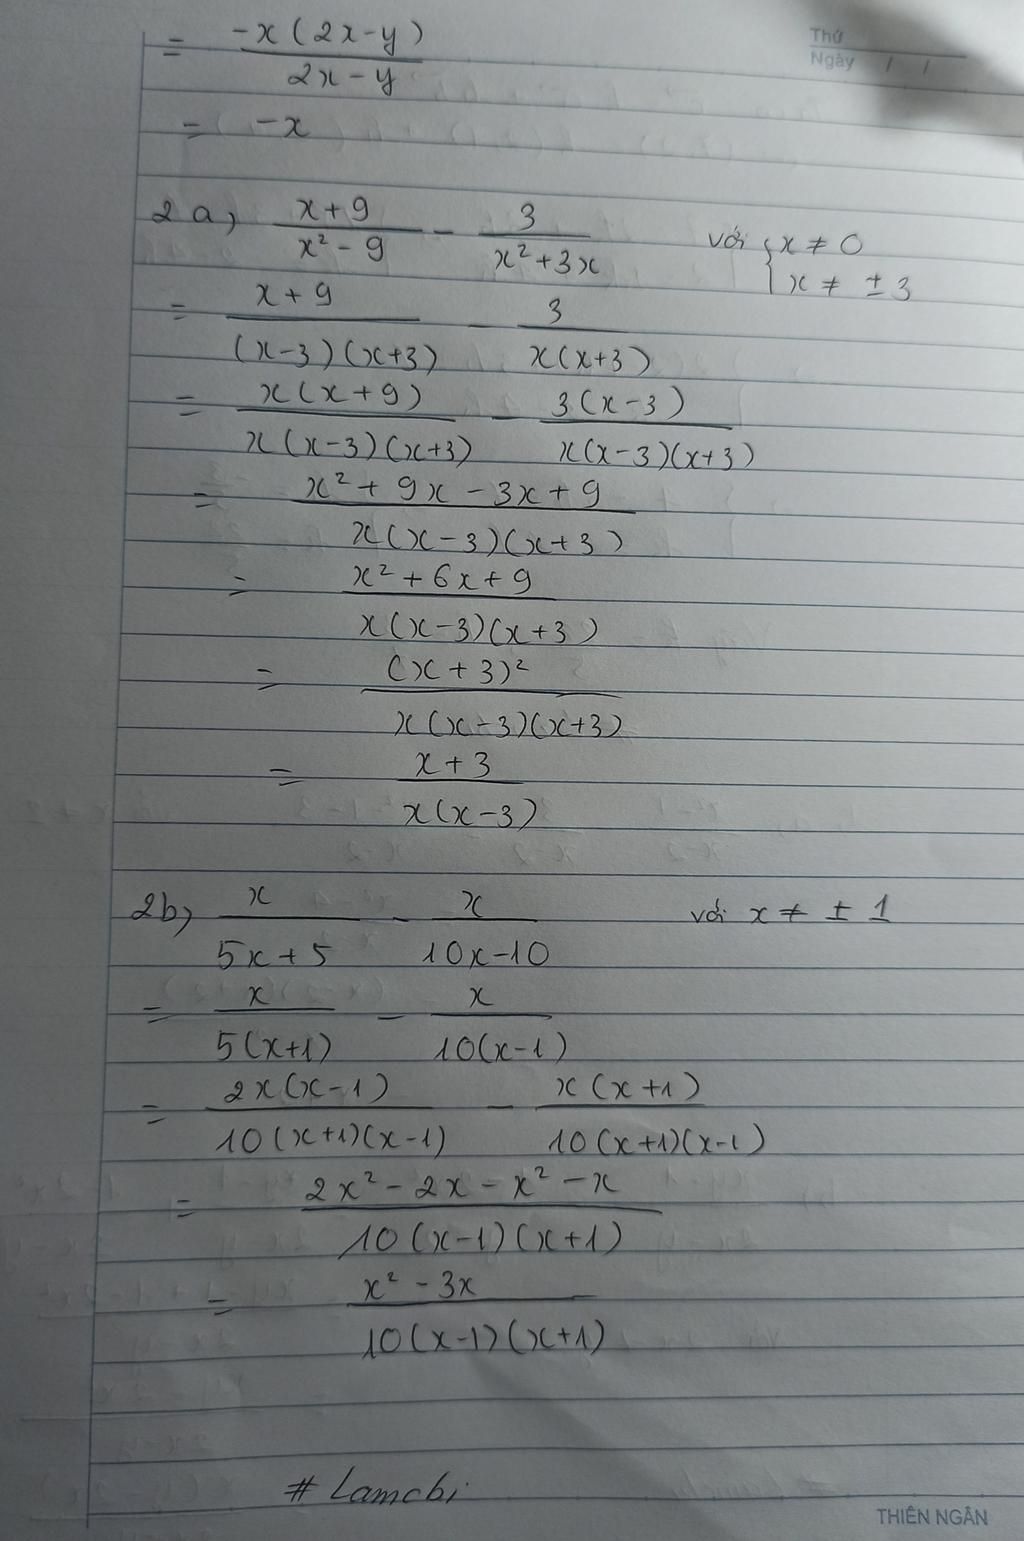 Thứ
Ngày / /
= -x(2x-y) / 2x-y
= -x
2a, x+9 / x² - 9 - 3 / x²+3x với { x ≠ 0
x ≠ ±3
= x+9 / (x-3)(x+3) - 3 / x(x+3)
= x(x+9) / x(x-3)(x+3) - 3(x-3) / x(x-3)(x+3)
= x² + 9x - 3x + 9 / x(x-3)(x+3)
= x² + 6x + 9 / x(x-3)(x+3)
= (x+3)² / x(x-3)(x+3)
= x+3 / x(x-3)
2b, x / 5x+5 - x / 10x-10 với x ≠ ±1
= x / 5(x+1) - x / 10(x-1)
= 2x(x-1) / 10(x+1)(x-1) - x(x+1) / 10(x+1)(x-1)
= 2x² - 2x - x² - x / 10(x-1)(x+1)
= x² - 3x / 10(x-1)(x+1)
# Lamchi
THIÊN NGÂN